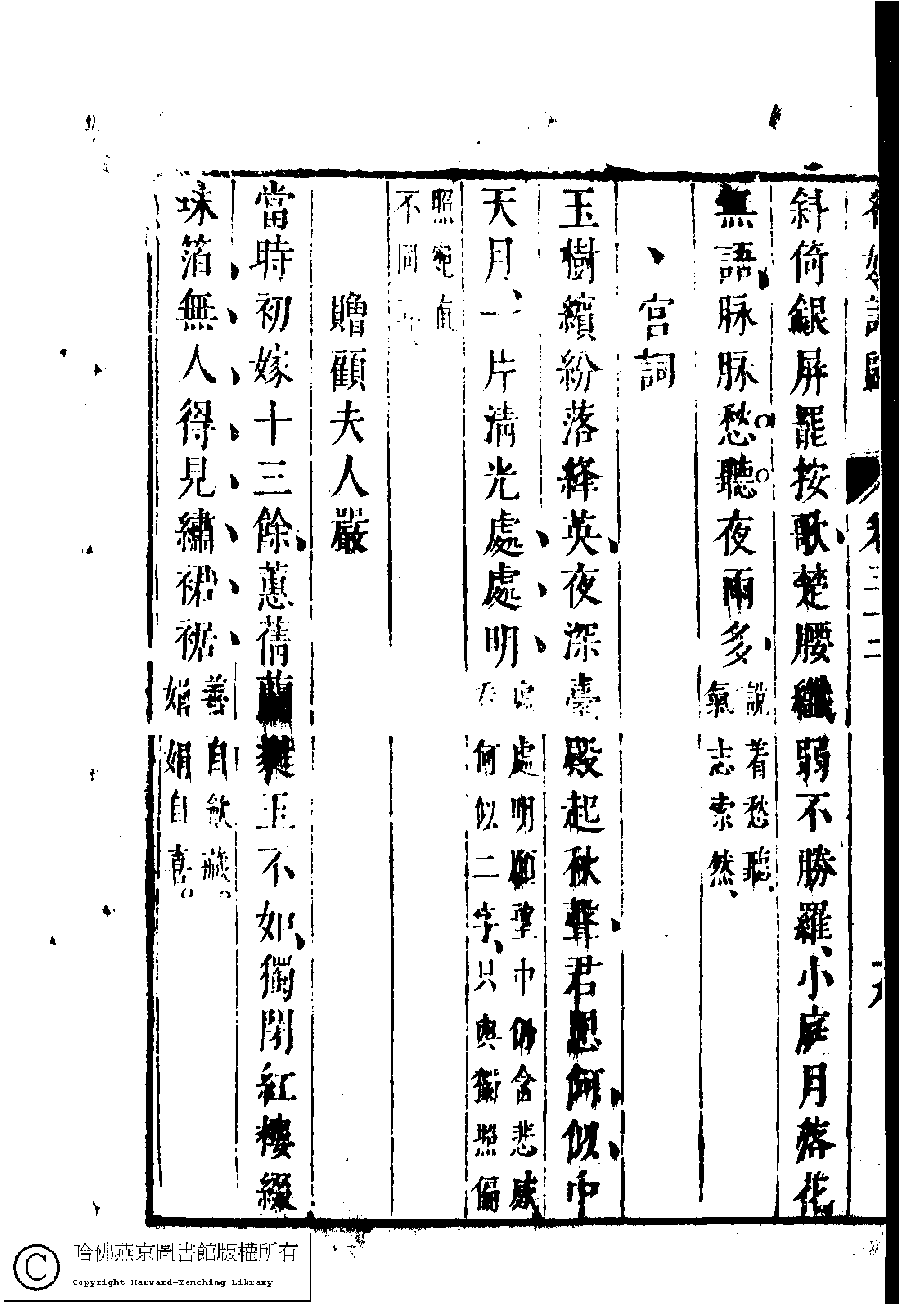 斜倚銀屏罷按歌楚腰纖弱不勝羅小庭月落花
無語脉脉愁聽夜雨多 說着愁聽氣志索然
宮詞
玉樹繽紛落絳英夜深臺殿起秋聲君恩何似中
天月一片清光處處明 處處明願望中仍含悲感 何似二字只與獨照偏
照 不同
贈顧夫人嚴
當時初嫁十三餘蕙蒨蘭 玉不如獨閉紅樓綴
珠箔無人得見繡裙裾 善自斂 娟娟自喜
哈佛燕京圖書館版權所有
Copyright Harvard-Yenching Library